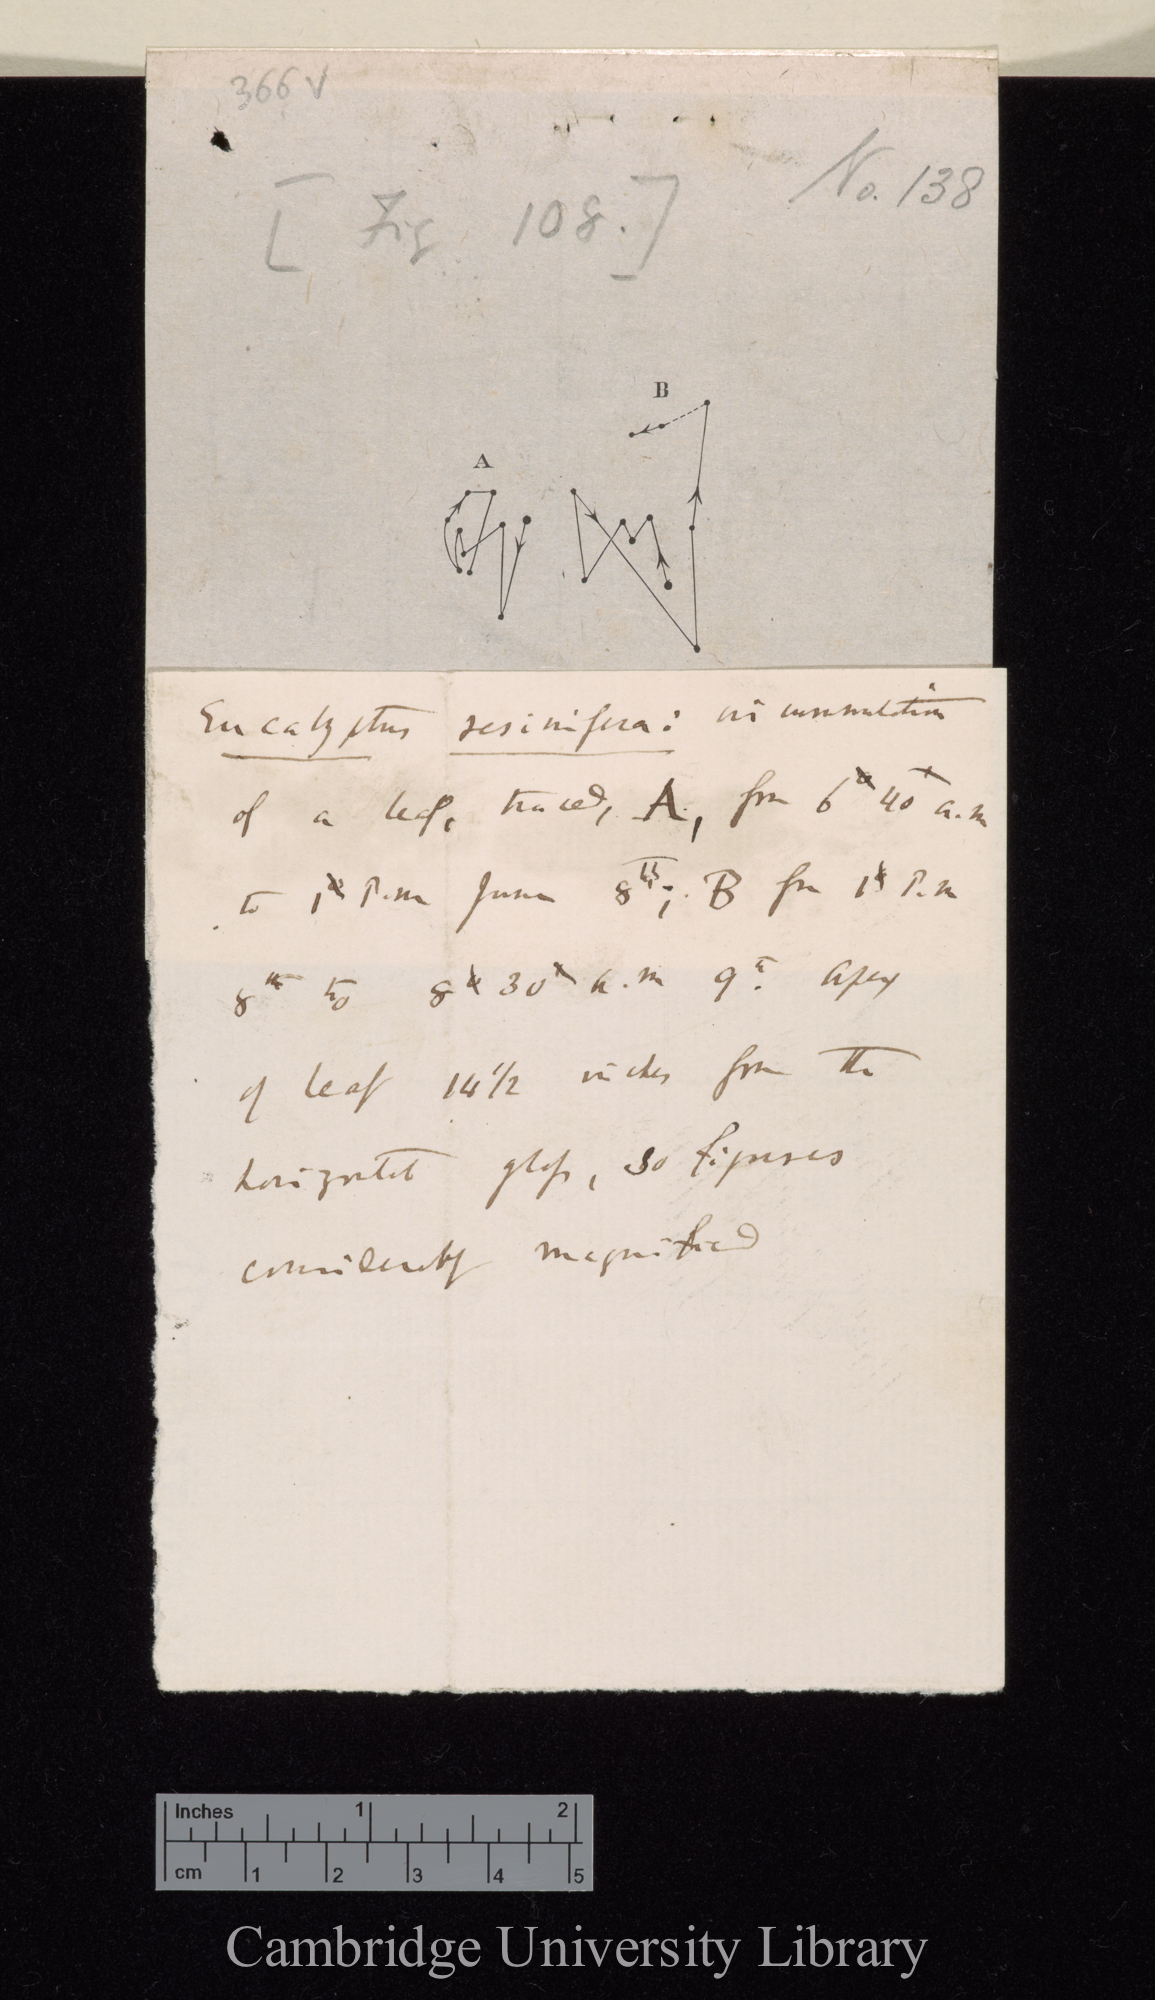 366 v
No. 138
[Fig 108.]
B
A
Eucalyptus resinifera: circumnutation
of a leaf, traced, A, from 6 40 a.m
to 1 P.m June 8th; B from 1 P.m
8th to 8 30 a.m 9th. Apex
of leaf 14 1/2 inches from the
horizontal glass, so figures
considerably magnified
Inches 1 2
cm 1 2 3 4 5
Cambridge University Library